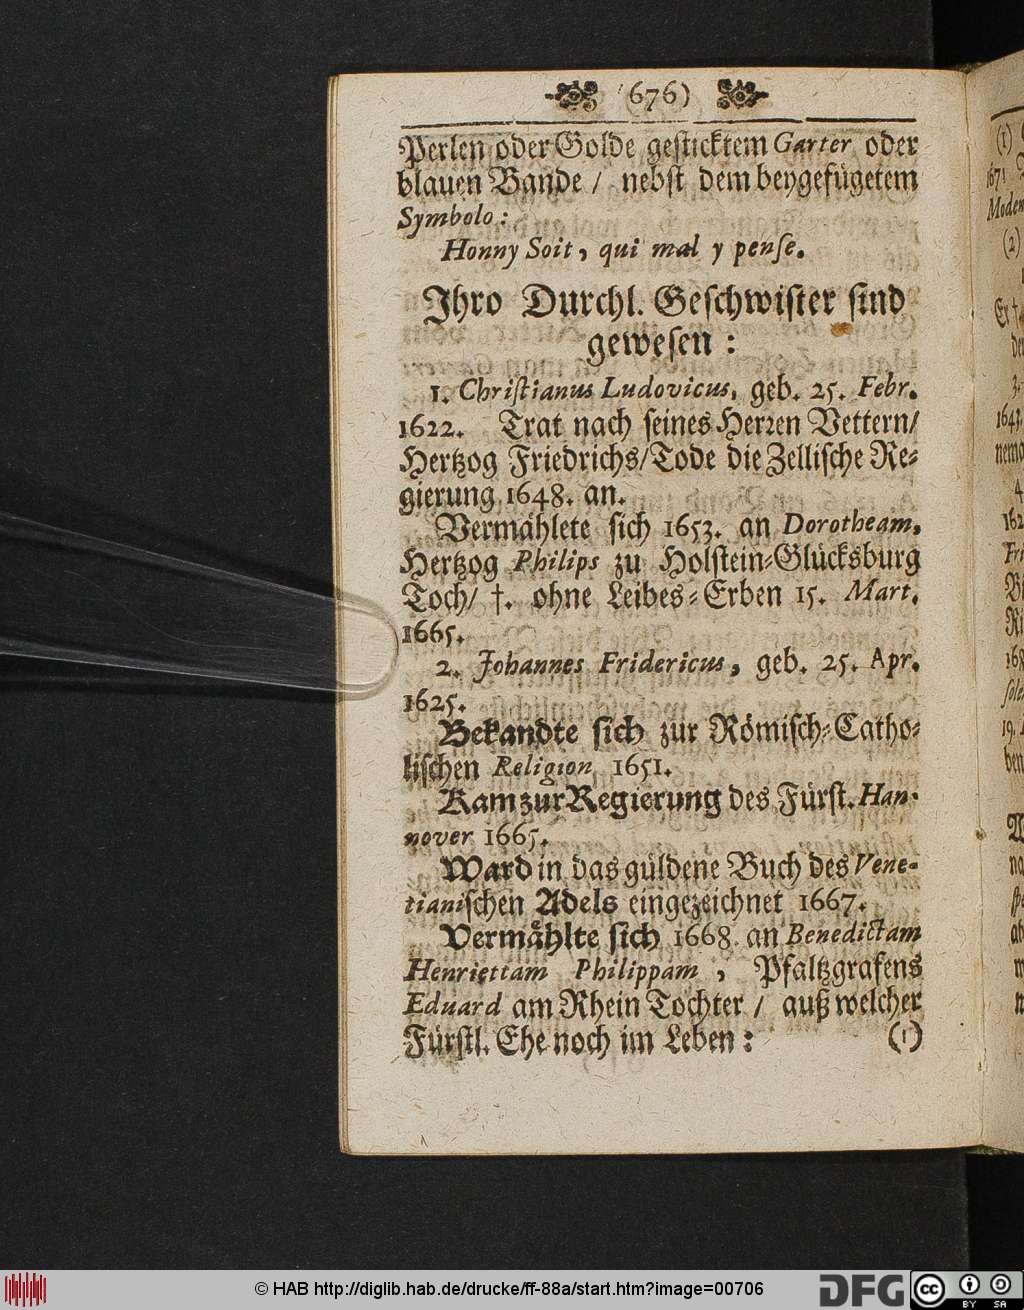 (676)
Perlen oder Golde gesticktem Garter oder
blauen Bande / nebst dem beygefügetem
Symbolo:
Honny Soit, qui mal y pense.
Ihro Durchl. Geschwister sind
gewesen:
1. Christianus Ludovicus, geb. 25. Febr.
1622. Trat nach seines Herren Vettern/
Hertzog Friedrichs/ Tode die Zellische Re-
gierung 1648. an.
Vermählete sich 1653. an Dorotheam,
Hertzog Philips zu Holstein-Glücksburg
Toch/ †. ohne Leibes-Erben 15. Mart.
1665.
2. Johannes Fridericus, geb. 25. Apr.
1625.
Bekandte sich zur Römisch-Catho-
lischen Religion 1651.
Kam zur Regierung des Fürst. Han-
nover 1665.
Ward in das güldene Buch des Vene-
tianischen Adels eingezeichnet 1667.
Vermählte sich 1668. an Benedictam
Henriettam Philippam, Pfaltzgrafens
Eduard am Rhein Tochter / auß welcher
Fürstl. Ehe noch im Leben:
(1)
© HAB http://diglib.hab.de/drucke/ff-88a/start.htm?image=00706
DFG
cc
BY SA